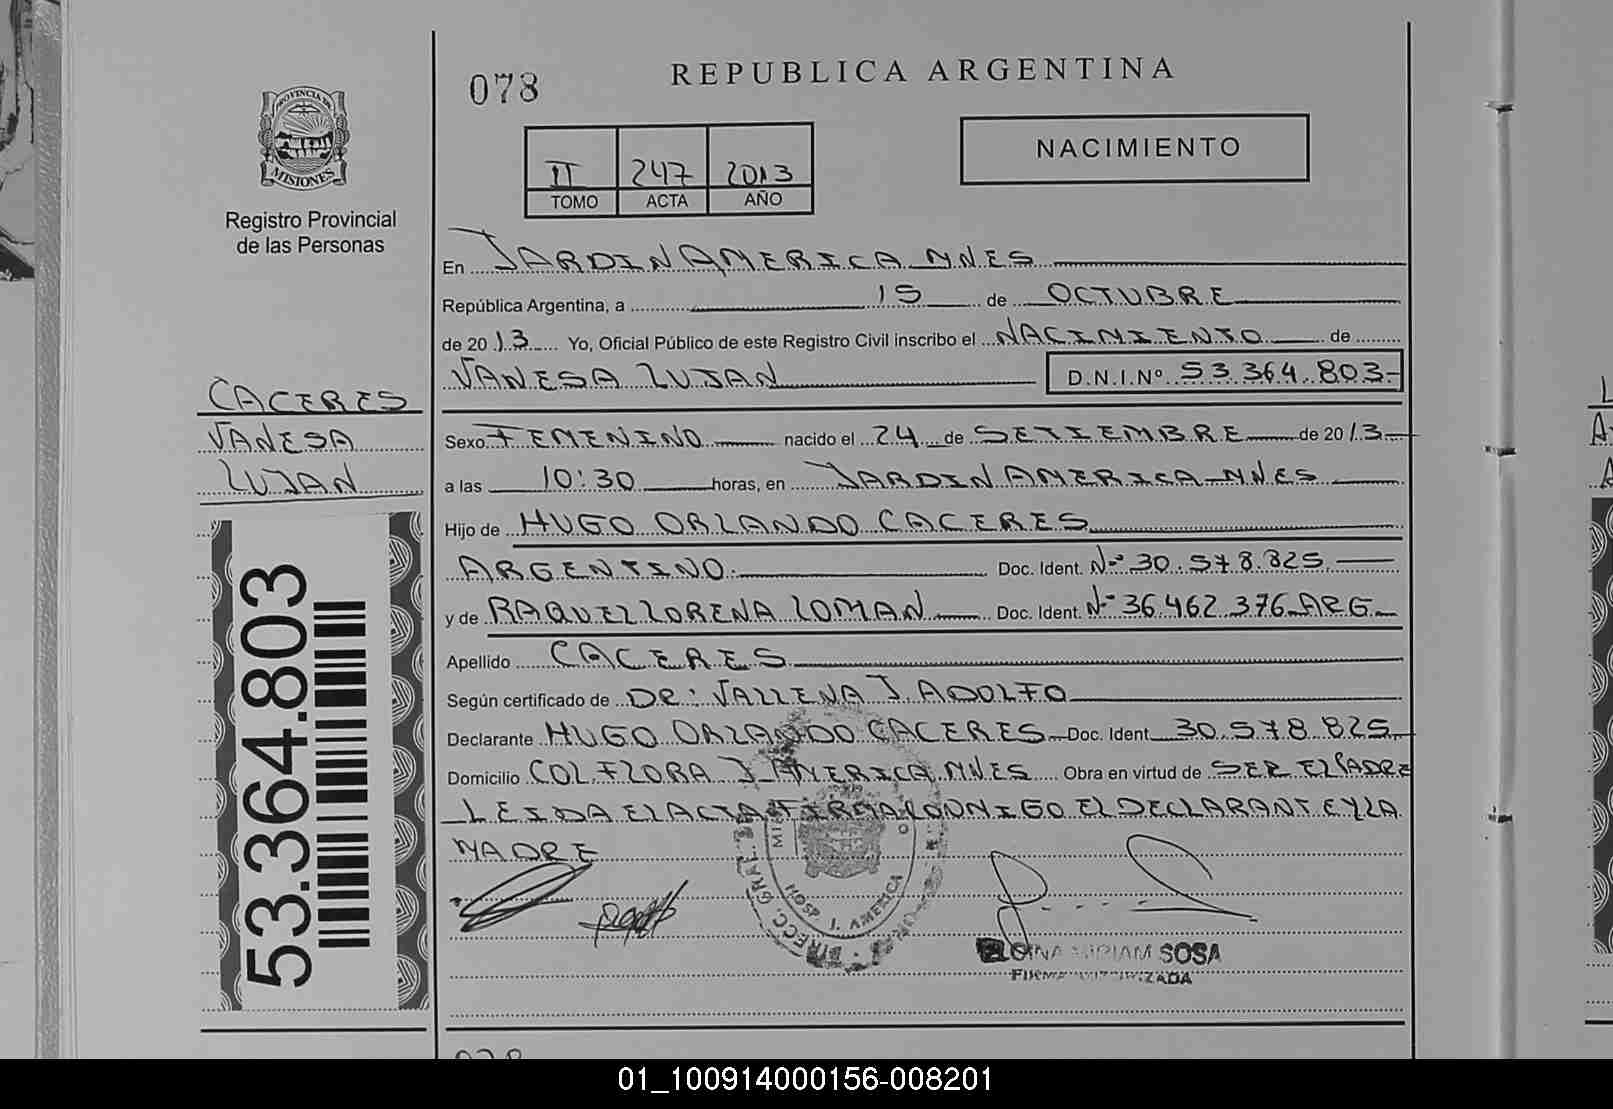 078
REPUBLICA ARGENTINA
NACIMIENTO
PROVINCIA DE
MISIONES
Registro Provincial
de las Personas
II 247 2013
TOMO ACTA AÑO
En JARDIN AMERICA MNES
República Argentina, a 15 de OCTUBRE
de 2013 Yo, Oficial Público de este Registro Civil inscribo el NACIMIENTO de
VANESA LUJAN D.N.I.Nº 53.364.803-
CACERES
VANESA
LUJAN
53.364.803
Sexo FEMENINO nacido el 24 de SETIEMBRE de 2013
a las 10:30 horas, en JARDIN AMERICA MNES
Hijo de HUGO ORLANDO CACERES
ARGENTINO. Doc. Ident. Nº 30.578.825
y de RAQUEL LORENA LOMAN Doc. Ident. Nº 36.462.376 ARG.
Apellido CACERES
Según certificado de DR: VALLENA J. ADOLFO
Declarante HUGO ORLANDO CACERES Doc. Ident 30.578.825
Domicilio COL FLORA J AMERICA MNES Obra en virtud de SER EL PADRE
LEIDA EL ACTA FIRMA CONMIGO EL DECLARANTE Y LA
MADRE
DIRECC. GRAL.
HOSP. J. AMERICA
MIRIAM SOSA
FIRMA AUTORIZADA
01_100914000156-008201